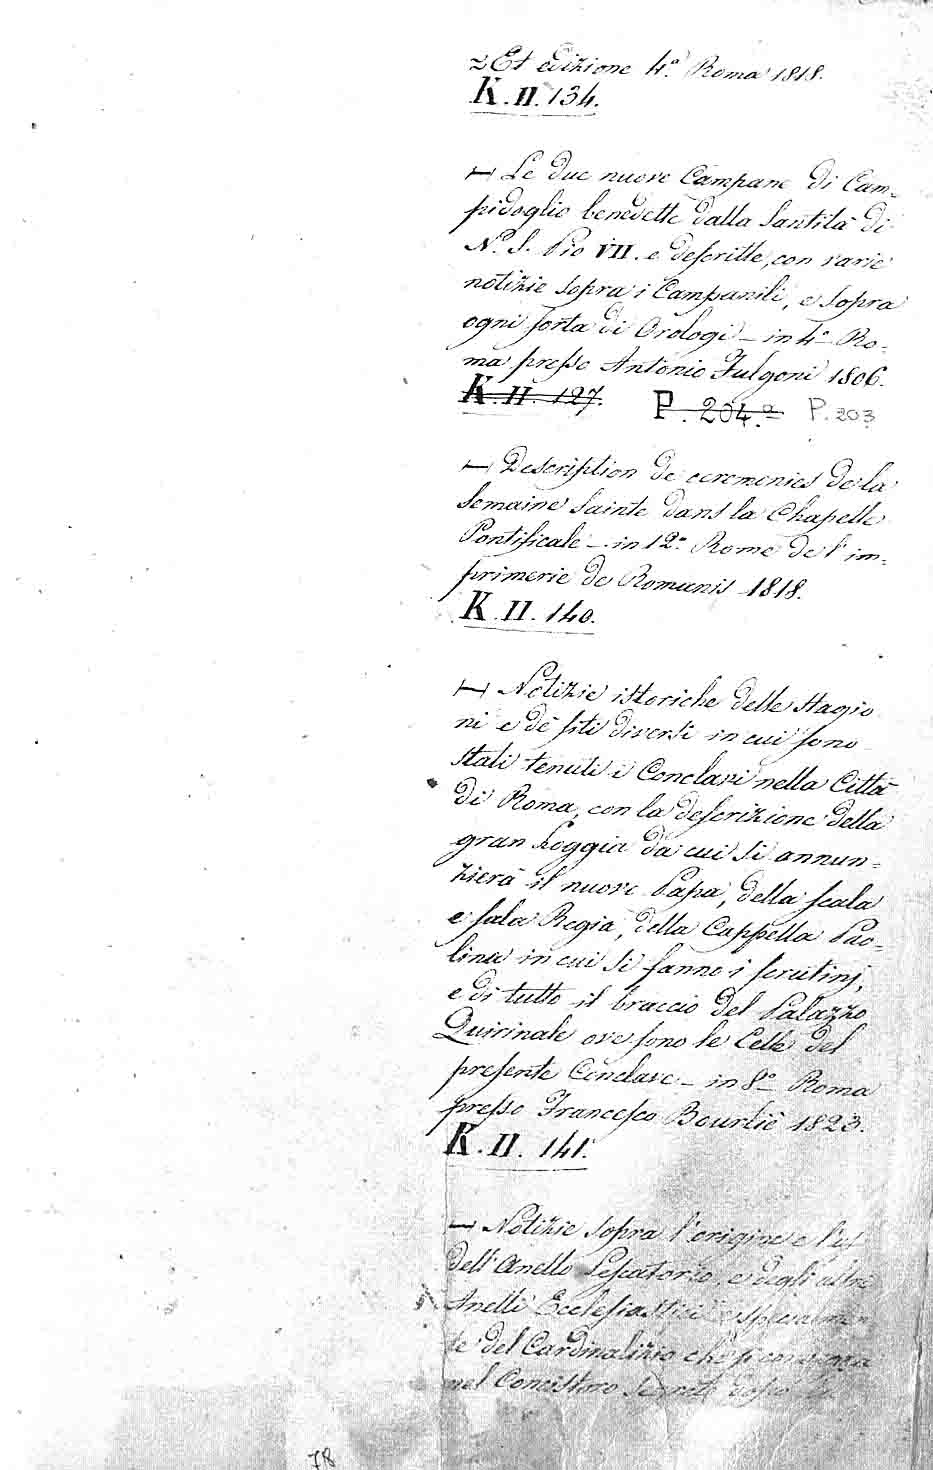 Et edizione 4.ª Roma 1818.
K. II. 134.
— Le due nuove Campane di Cam=
pidoglio benedette dalla Santità di
N.º S. Pio VII. e descritte, con varie
notizie sopra i Campanili, e sopra
ogni sorta di Orologi – in 4.º Ro=
ma presso Antonio Fulgoni 1806.
K. II. 127. P. 204.ª P. 203
— Description de ceremonies de la
Semaine Sainte dans la Chapelle
Pontificale – in 12.º Rome de l'im=
primerie de Romanis 1818.
K. II. 140.
— Notizie istoriche delle Stagio
ni e de siti diversi in cui sono
stati tenuti i Conclavi nella Città
di Roma, con la descrizione della
gran Loggia da cui si annun=
zierà il nuovo Papa, della scala
e sala Regia, della Cappella Pao=
lina in cui si fanno i scrutinj,
e di tutto il braccio del Palazzo
Quirinale ove sono le Celle del
presente Conclave – in 8.º Roma
presso Francesco Bourliè 1823.
K. II. 141.
— Notizie sopra l'origine e l'
dell'Anello Pescatorio, e degli altri
Anelli Ecclesiastici
te del Cardinalizio che si
nel Concistoro Segreto dopo
78